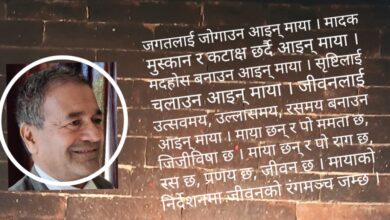 जगतलाई जोगाउन आइन् माया । मादक
मुस्कान र कटाक्ष छर्दै आइन् माया ।
मदहोस बनाउन आइन् माया । सृष्टिलाई
चलाउन आइन् माया । जीवनलाई
उत्सवमय, उल्लासमय, रसमय बनाउन
आइन् माया । माया छन् र पो ममता छ,
जिजीविषा छ । माया छन् र पो राग छ,
रस छ, प्रणय छ, जीवन छ । मायाको
निर्देशनमा जीवनको रंगमञ्च जम्छ ।